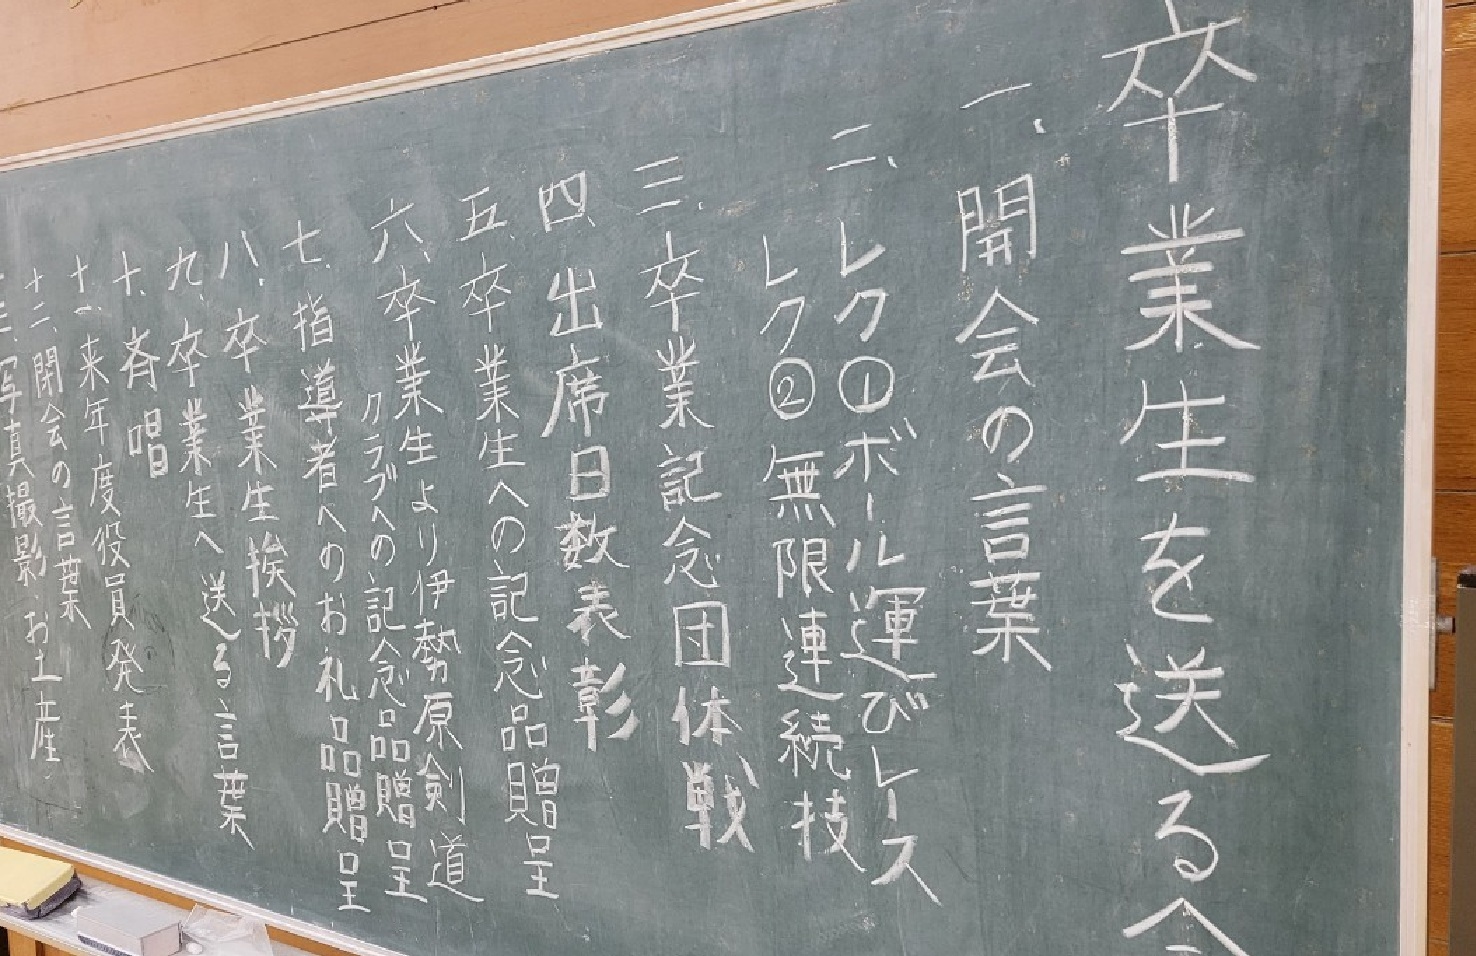 卒業生を送る会
一、開会の言葉
二、レク①ボール運びレース
レク②無限連続技
三、卒業記念団体戦
四、出席日数表彰
五、卒業生への記念品贈呈
六、卒業生より伊勢原剣道
クラブへの記念品贈呈
七、指導者へのお礼品贈呈
八、卒業生挨拶
九、卒業生へ送る言葉
十、斉唱
十一、来年度役員発表
十二、閉会の言葉
三、写真撮影・お土産